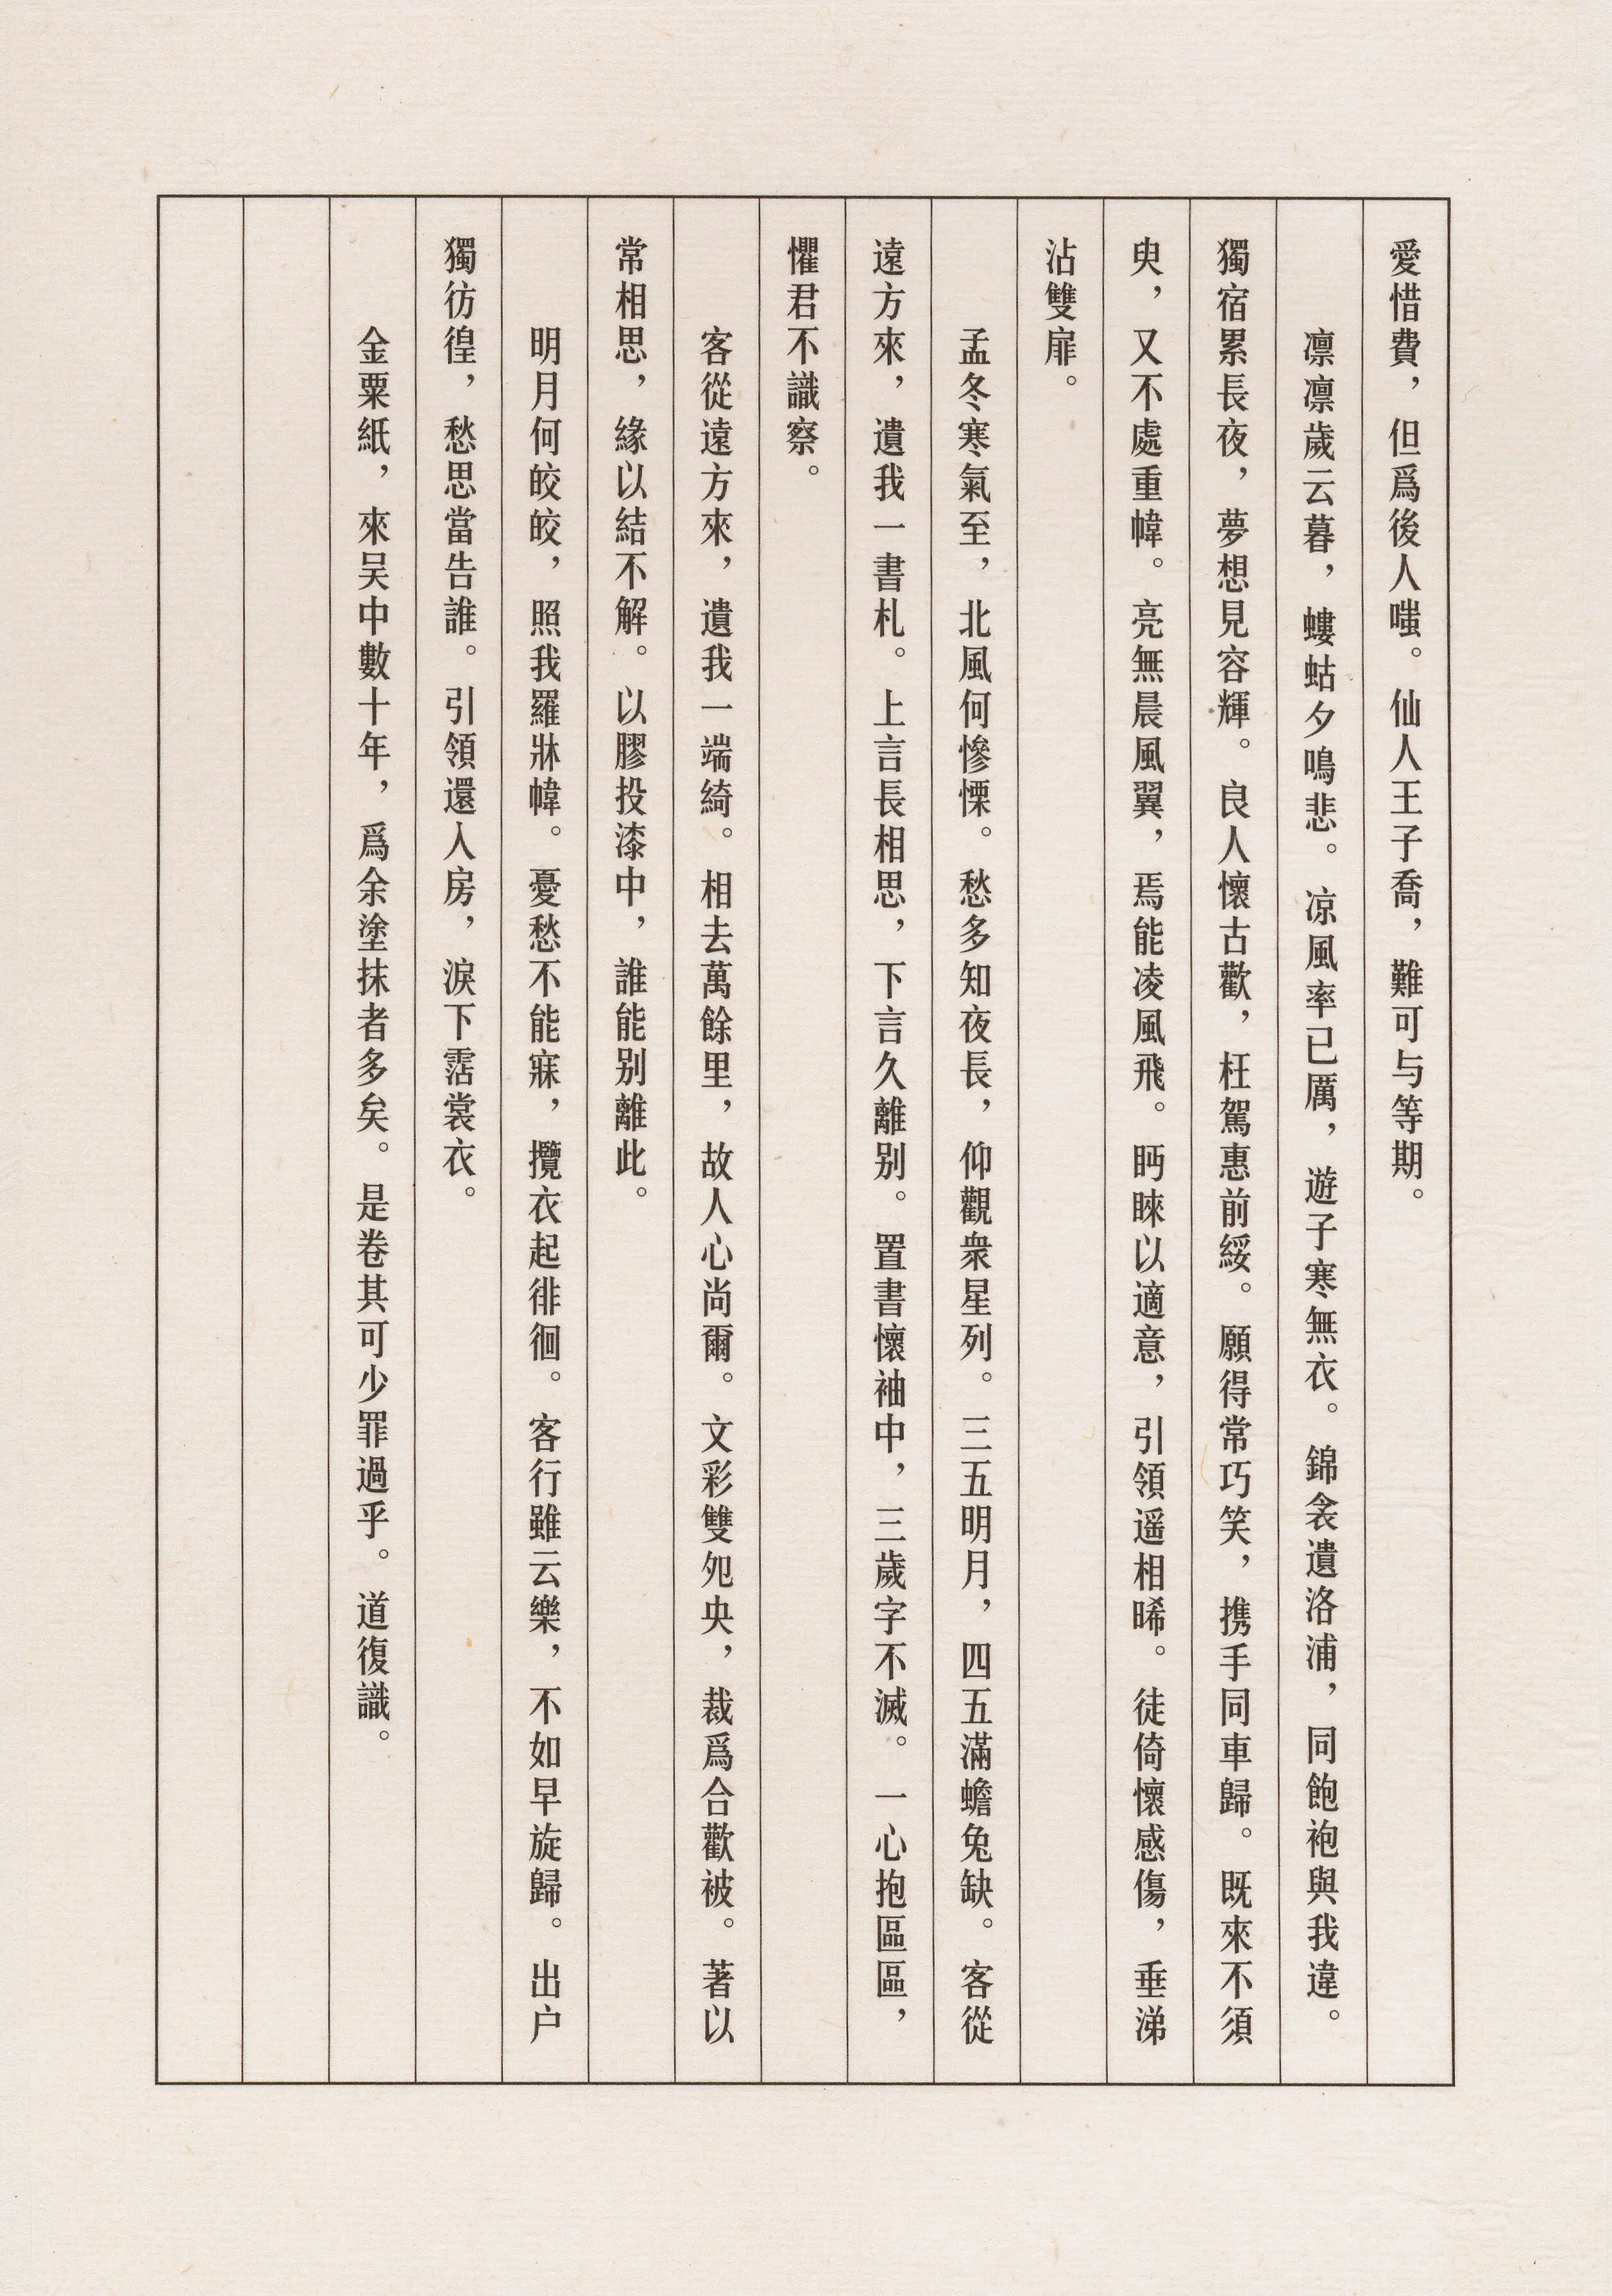 愛惜費，但爲後人嗤。仙人王子喬，難可与等期。
凛凛歲云暮，螻蛄夕鳴悲。凉風率已厲，遊子寒無衣。錦衾遺洛浦，同飽袍與我違。
獨宿累長夜，夢想見容輝。良人懷古歡，枉駕惠前綏。願得常巧笑，携手同車歸。既來不須
臾，又不處重幃。亮無晨風翼，焉能凌風飛。眄睞以適意，引領遥相晞。徒倚懷感傷，垂涕
沾雙扉。
孟冬寒氣至，北風何慘慄。愁多知夜長，仰觀衆星列。三五明月，四五滿蟾兔缺。客從
遠方來，遺我一書札。上言長相思，下言久離别。置書懷袖中，三歲字不滅。一心抱區區，
懼君不識察。
客從遠方來，遺我一端綺。相去萬餘里，故人心尚爾。文彩雙夗央，裁爲合歡被。著以
常相思，緣以結不解。以膠投漆中，誰能别離此。
明月何皎皎，照我羅牀幃。憂愁不能寐，攬衣起徘徊。客行雖云樂，不如早旋歸。出户
獨彷徨，愁思當告誰。引領還入房，淚下霑裳衣。
金粟紙，來吴中數十年，爲余塗抹者多矣。是卷其可少罪過乎。道復識。